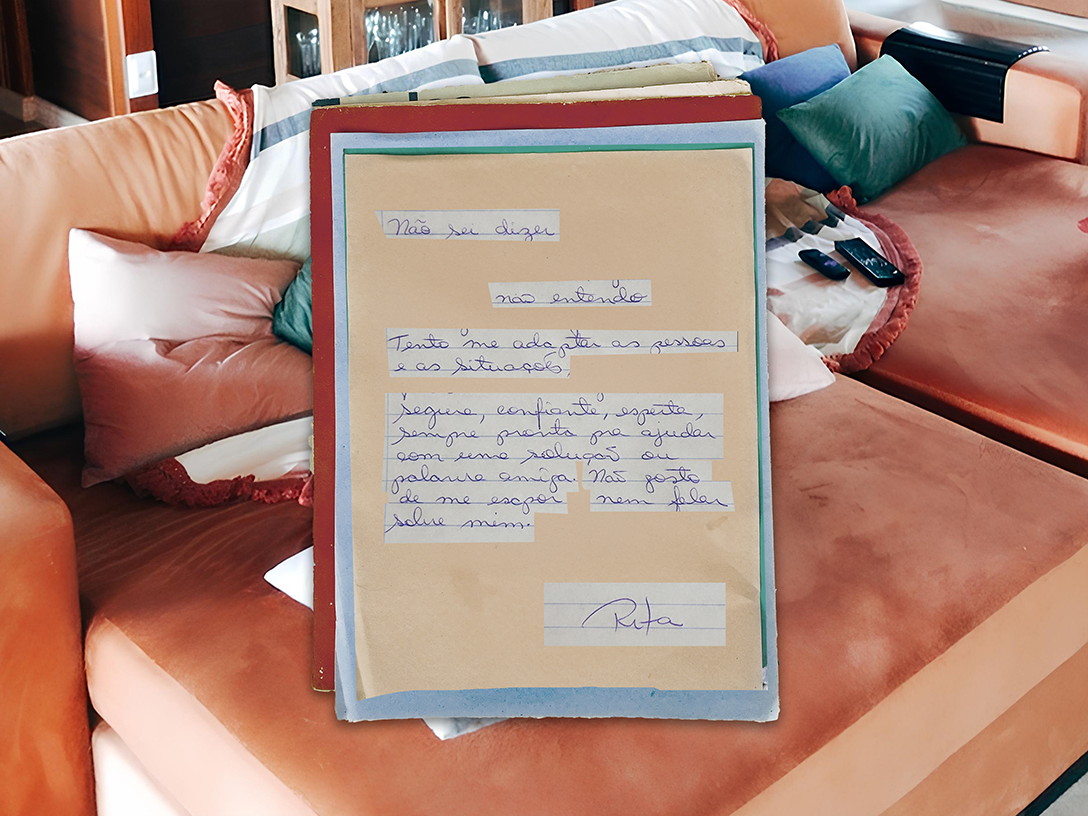 Não sei dizer
não entendo
Tento me adaptar as pessoas
e as situações,
segura, confiante, esperta,
sempre pronta pra ajudar
com uma solução ou
palavra amiga. Não gosto
de me expor nem falar
sobre mim.
Rita